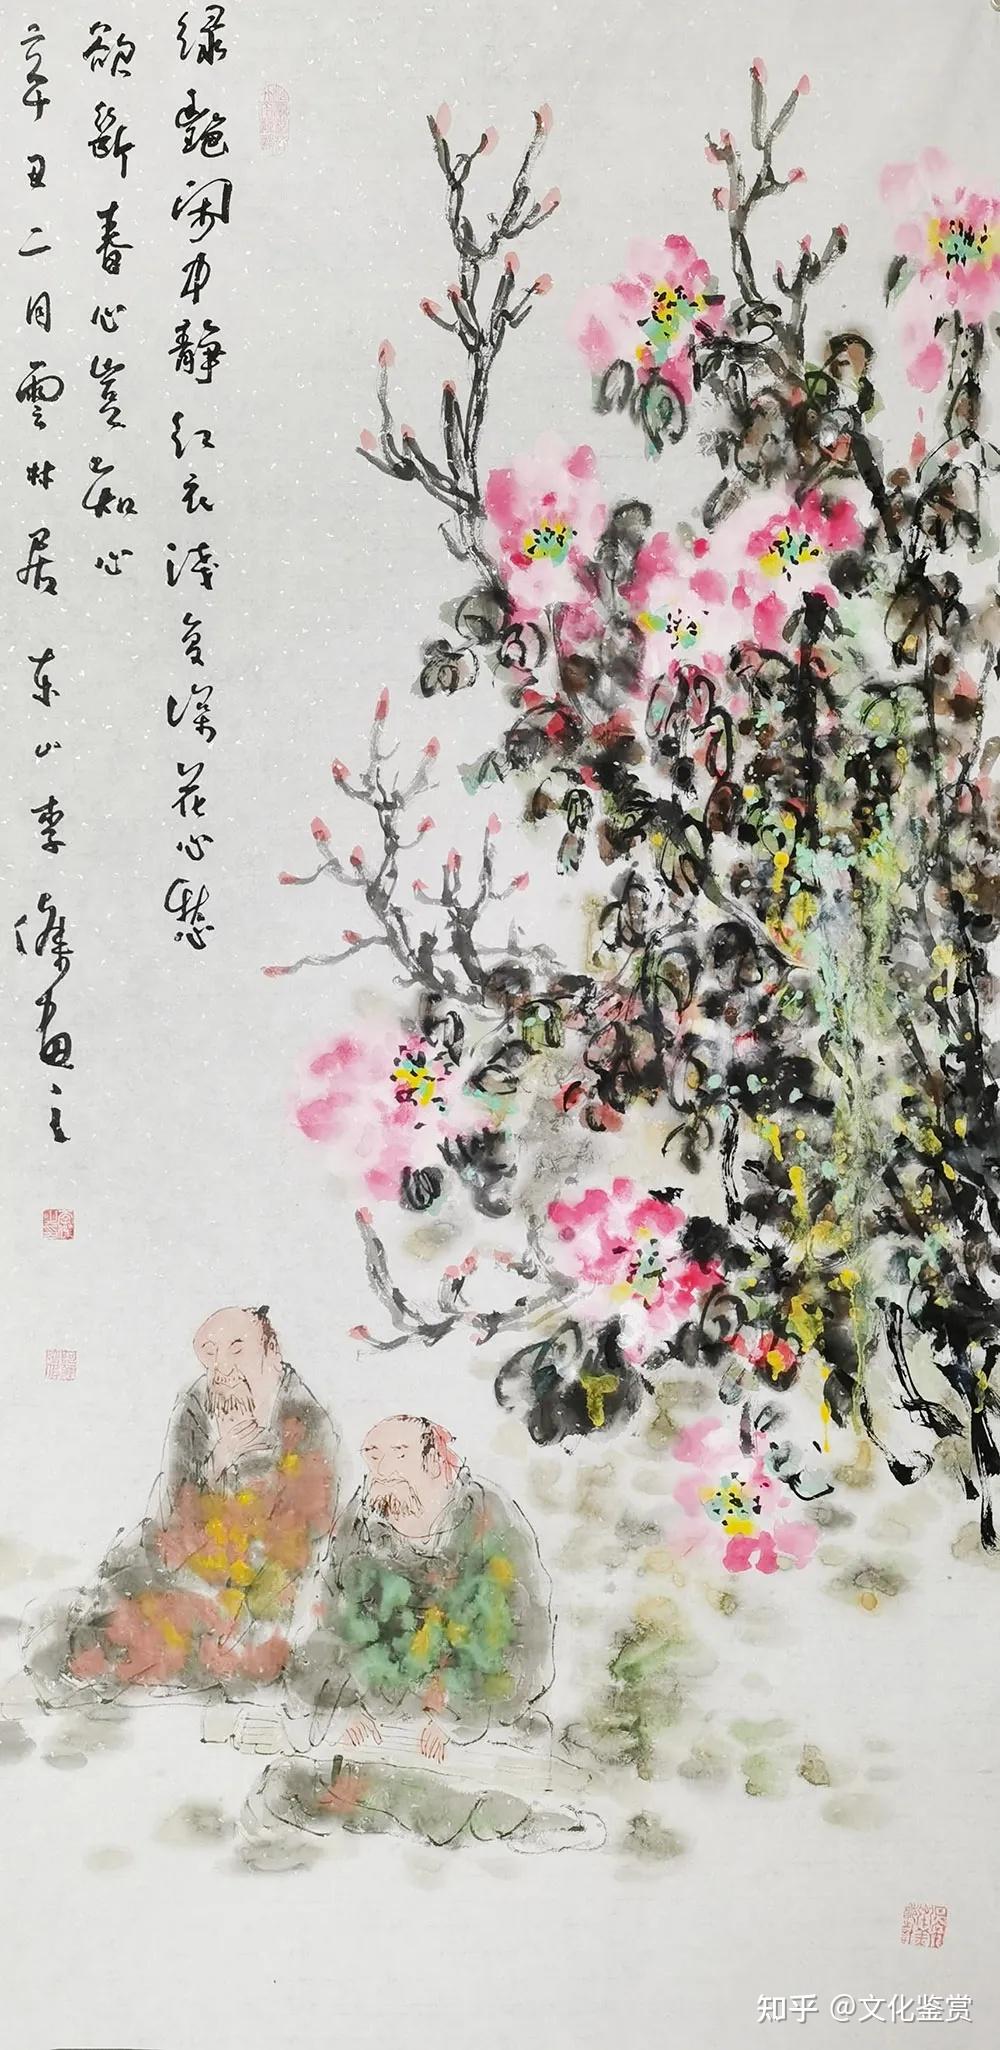 绿艷闲且静红衣浅复深花心愁
欲斷春心豈知心
辛丑二月雲林居 东山李画
知乎 @文化鉴赏